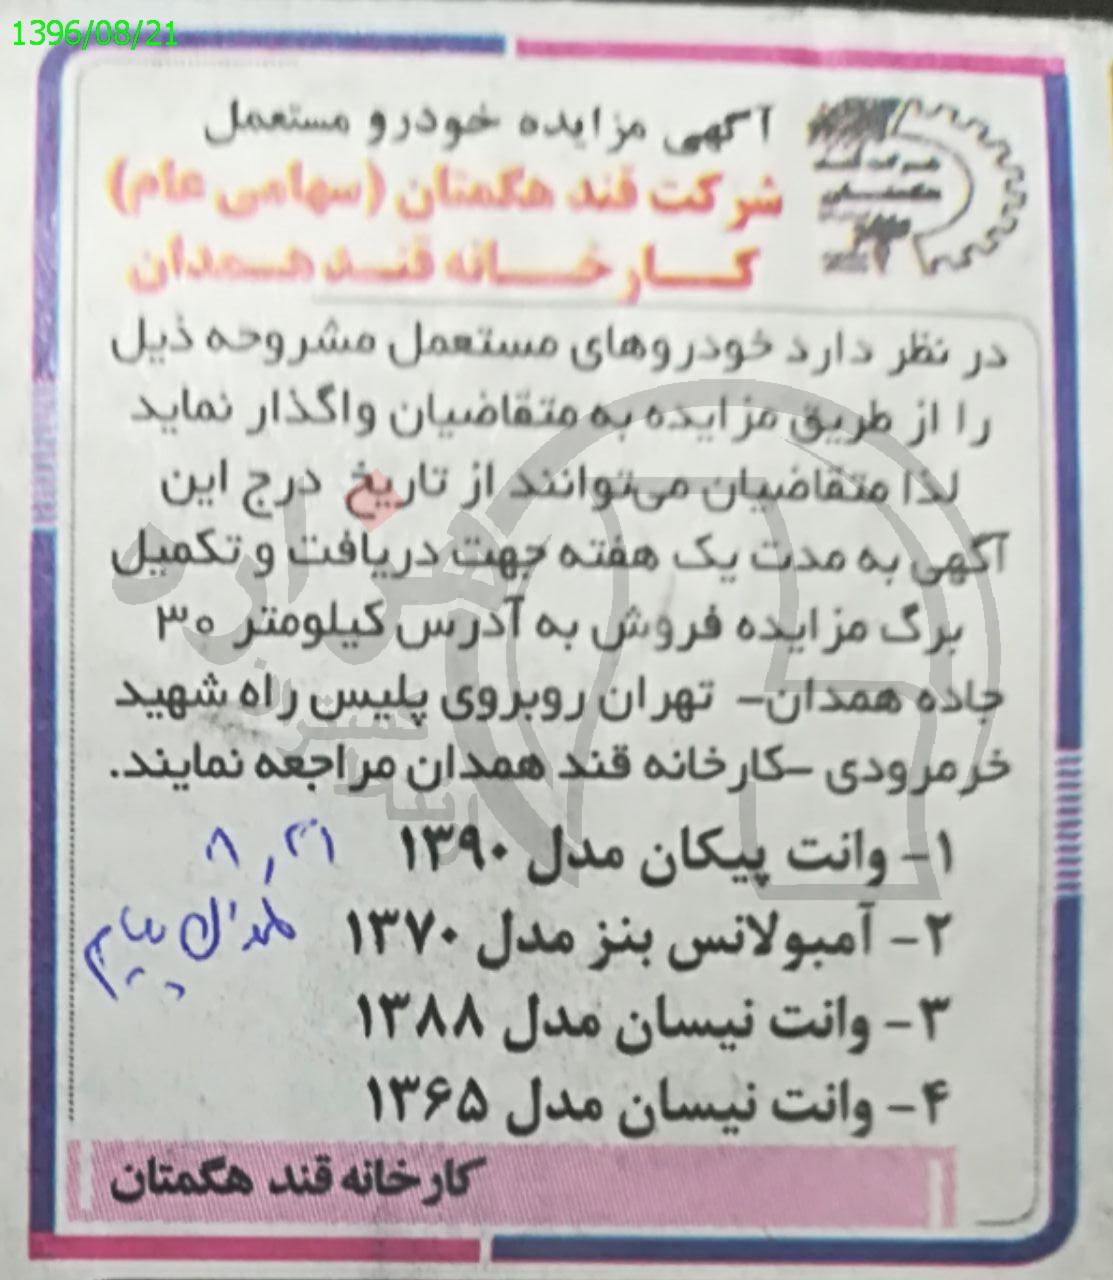 1396/08/21
آگهی مزایده خودرو مستعمل
شرکت قند هگمتان (سهامی عام)
کارخانه قند همدان
شرکت قند
هگمتان
در نظر دارد خودروهای مستعمل مشروحه ذیل
را از طریق مزایده به متقاضیان واگذار نماید
لذا متقاضیان می‌توانند از تاریخ درج این
آگهی به مدت یک هفته جهت دریافت و تکمیل
برگ مزایده فروش به آدرس کیلومتر ۳۰
جاده همدان- تهران روبروی پلیس راه شهید
خرمرودی -کارخانه قند همدان مراجعه نمایند.
۱- وانت پیکان مدل ۱۳۹۰
۲- آمبولانس بنز مدل ۱۳۷۰
۳- وانت نیسان مدل ۱۳۸۸
۴- وانت نیسان مدل ۱۳۶۵
۸,۲۱
همدان پیام
کارخانه قند هگمتان
هزاره